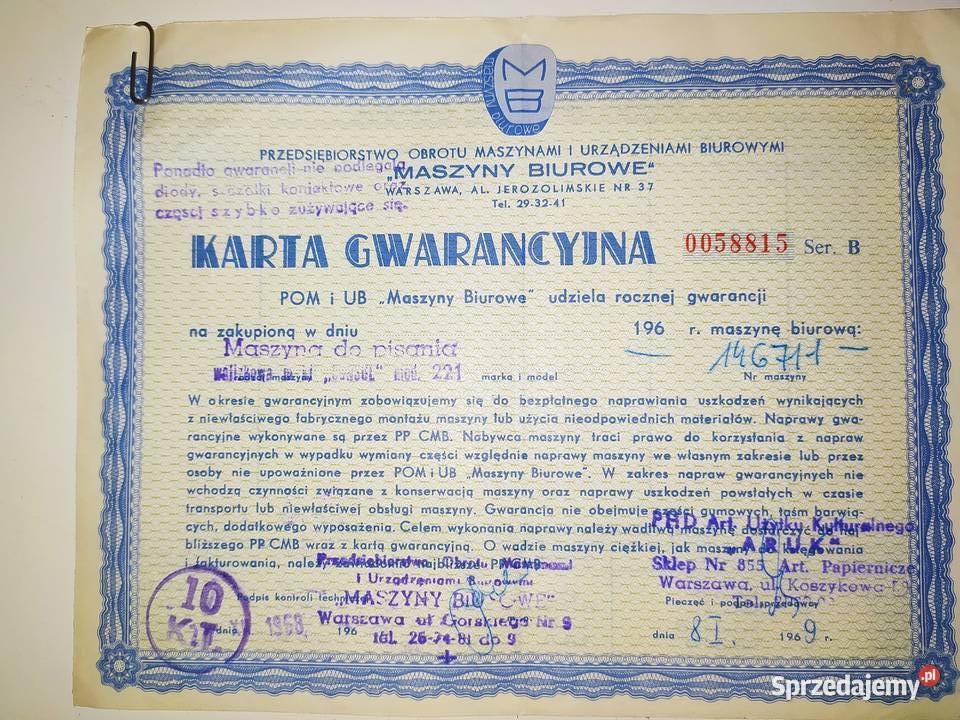 MASZYNY
MB
biurowe
PRZEDSIĘBIORSTWO OBROTU MASZYNAMI I URZĄDZENIAMI BIUROWYMI
Ponadto gwarancji nie podlegają
diody, szczotki kontaktowe oraz
części szybko zużywające się.
„MASZYNY BIUROWE"
WARSZAWA, AL. JEROZOLIMSKIE NR 37
Tel. 29-32-41
KARTA GWARANCYJNA 0058815 Ser. B
POM i UB „Maszyny Biurowe" udziela rocznej gwarancji
na zakupioną w dniu 196 r. maszynę biurową:
Maszyna do pisania — 146711 —
walizkowa „CONSUL" mod. 221 marka i model Nr maszyny
W okresie gwarancyjnym zobowiązujemy się do bezpłatnego naprawiania uszkodzeń wynikających
z niewłaściwego fabrycznego montażu maszyny lub użycia nieodpowiednich materiałów. Naprawy gwa-
rancyjne wykonywane są przez PP CMB. Nabywca maszyny traci prawo do korzystania z napraw
gwarancyjnych w wypadku wymiany części względnie naprawy maszyny we własnym zakresie lub przez
osoby nie upoważnione przez POM i UB „Maszyny Biurowe". W zakres napraw gwarancyjnych nie
wchodzą czynności związane z konserwacją maszyny oraz naprawy uszkodzeń powstałych w czasie
transportu lub niewłaściwej obsługi maszyny. Gwarancja nie obejmuje części gumowych, taśm barwią-
cych, dodatkowego wyposażenia. Celem wykonania naprawy należy wadliwą maszynę dostarczyć do naj-
bliższego PP CMB wraz z kartą gwarancyjną. O wadzie maszyny ciężkiej, jak maszyny do księgowania
i fakturowania, należy zawiadomić najbliższe PP CMB.
PHD Art. Użytku Kulturalnego
„ARUK"
Sklep Nr 855 Art. Papiernicze
Warszawa, ul. Koszykowa
Tel.
Przedsiębiorstwo Obrotu Maszynami
i Urządzeniami Biurowymi
„MASZYNY BIUROWE"
Warszawa ul Górskiego Nr 9
tel. 26-74-81 do 9
10
K.T.
Podpis kontroli techn
dnia 1968 196
Pieczęć i podpis sprzedawcy
dnia 8 I. 1969 r.
Sprzedajemy.pl